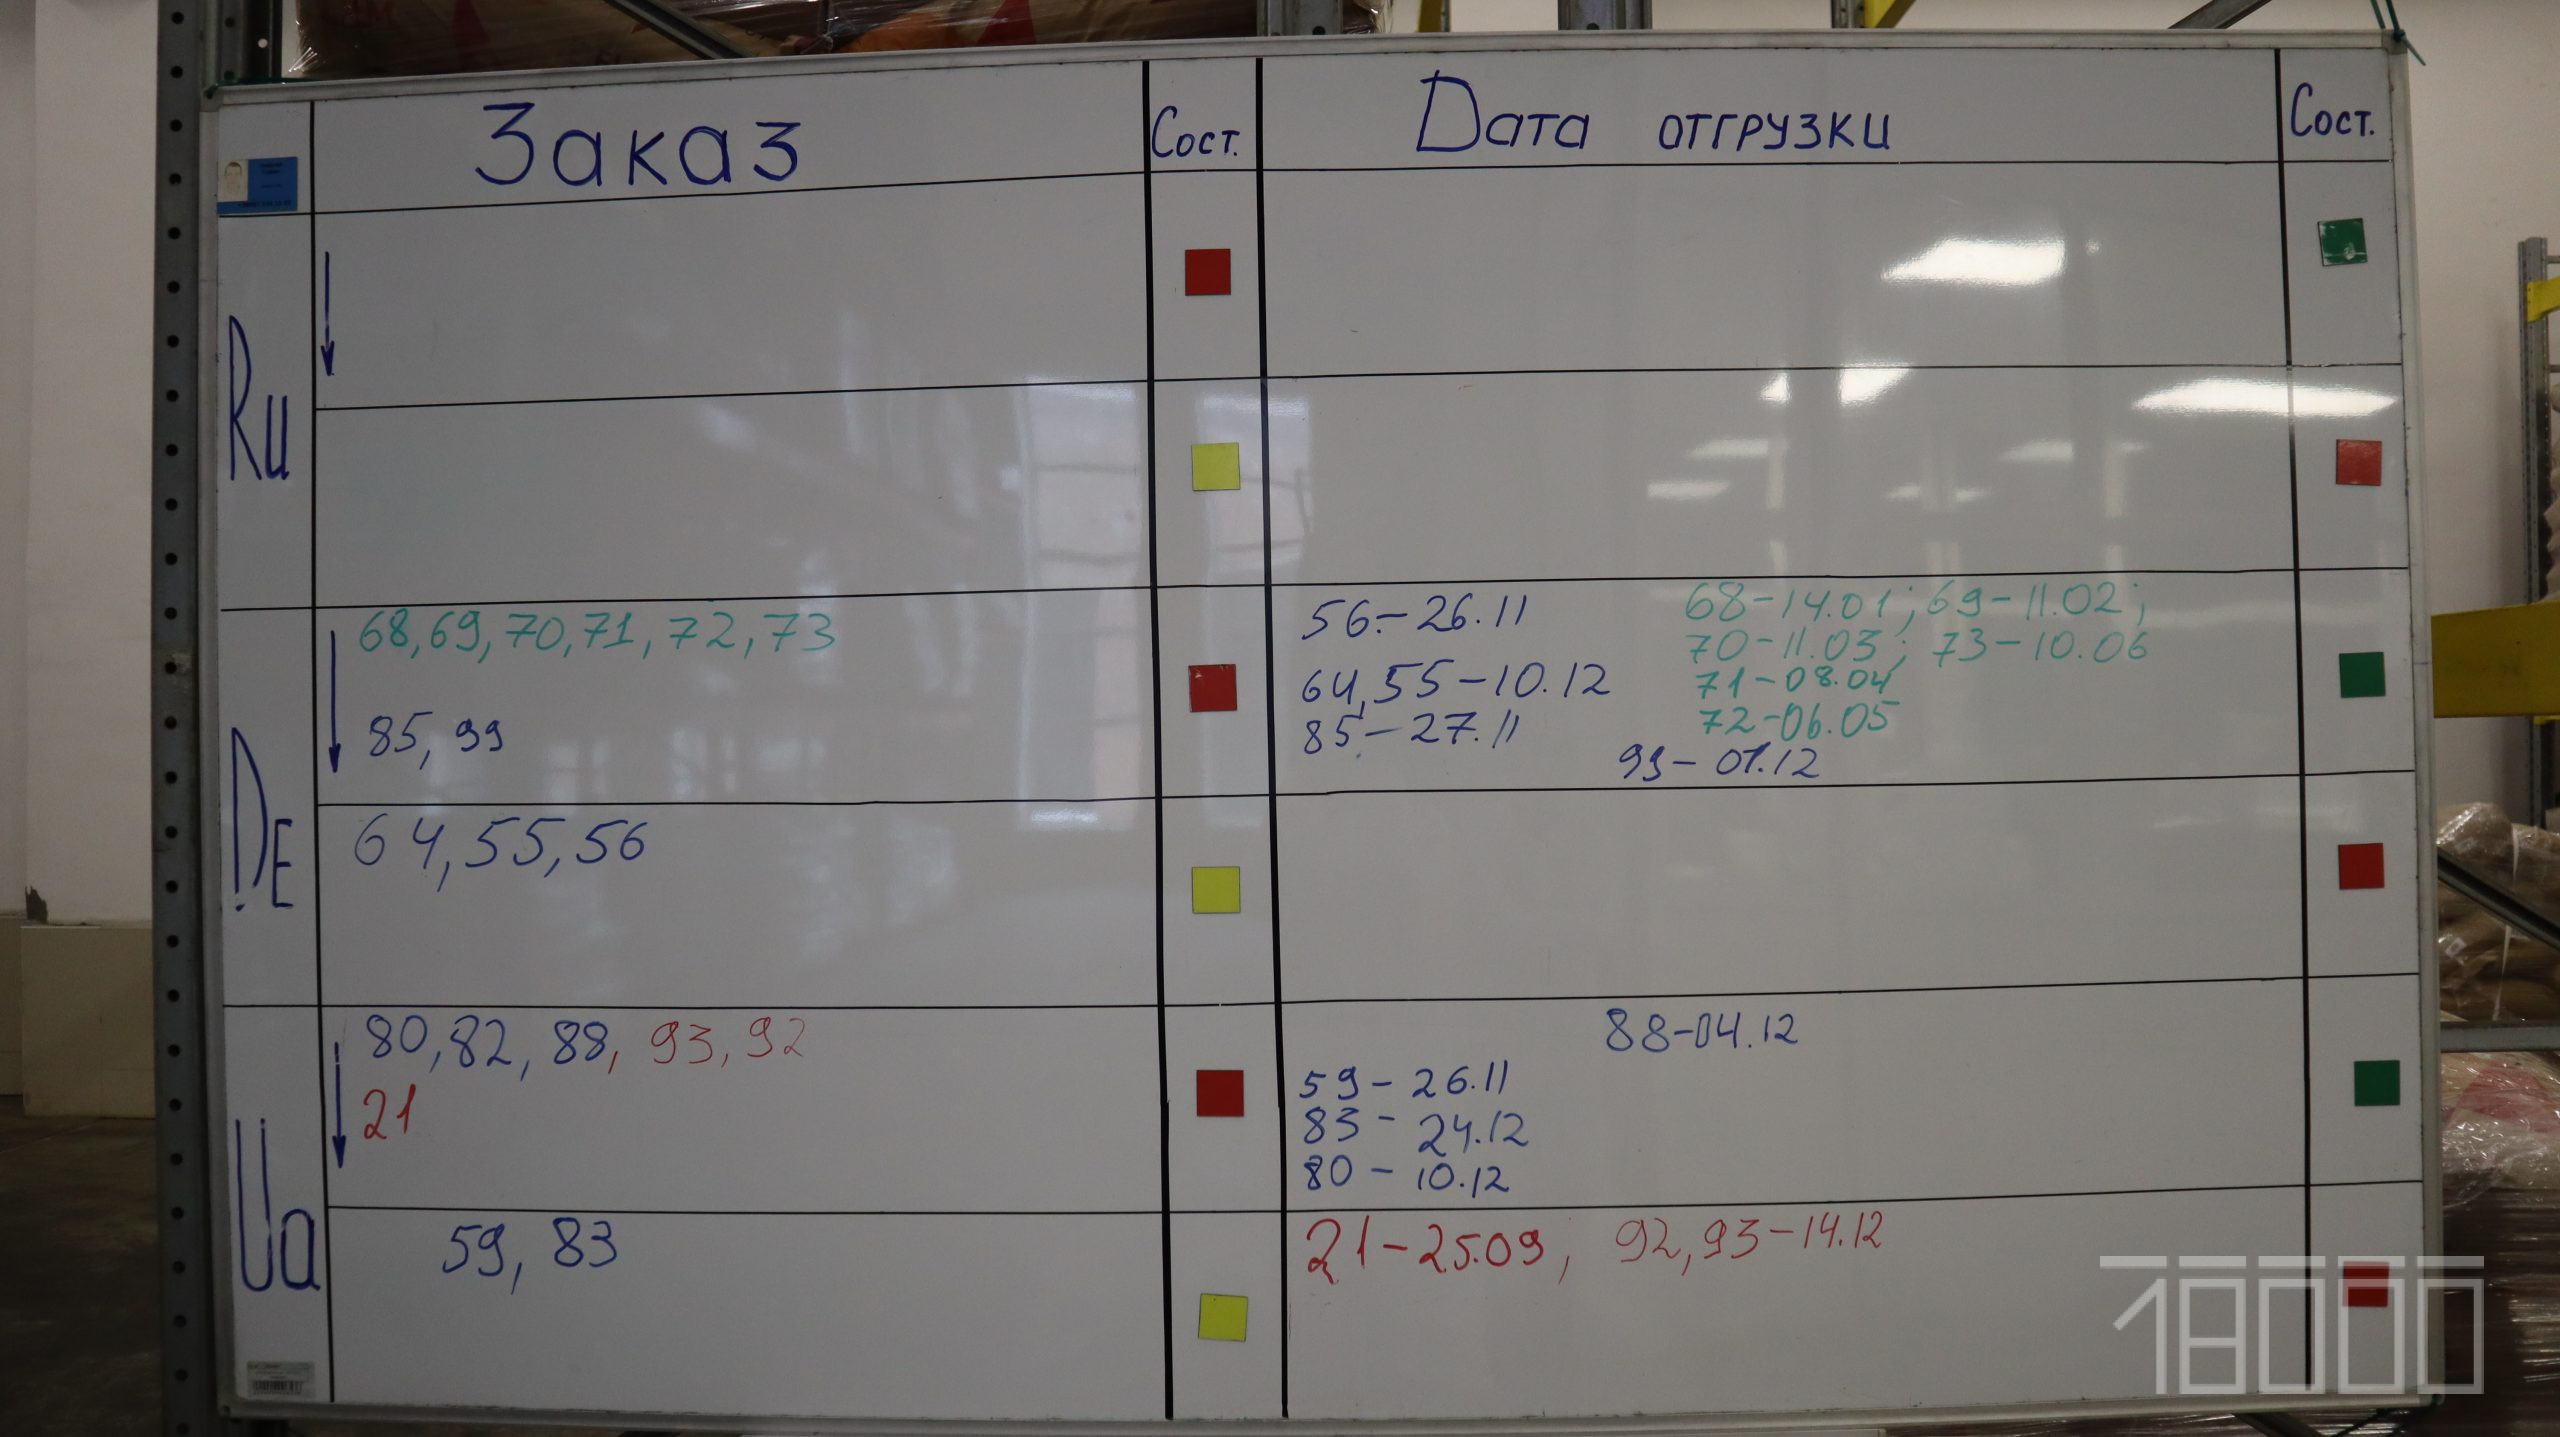 Заказ
Сост.
Дата отгрузки
Сост.
Ru
DE
68,69,70,71,72,73
85,99
56-26.11
64,55-10.12
85-27.11
68-14.01; 69-11.02;
70-11.03; 73-10.06
71-08.04
72-06.05
99-01.12
64,55,56
Ua
80,82,88, 93,92
21
88-04.12
59-26.11
83-24.12
80-10.12
59, 83
21-25.09; 92,93-14.12
18000